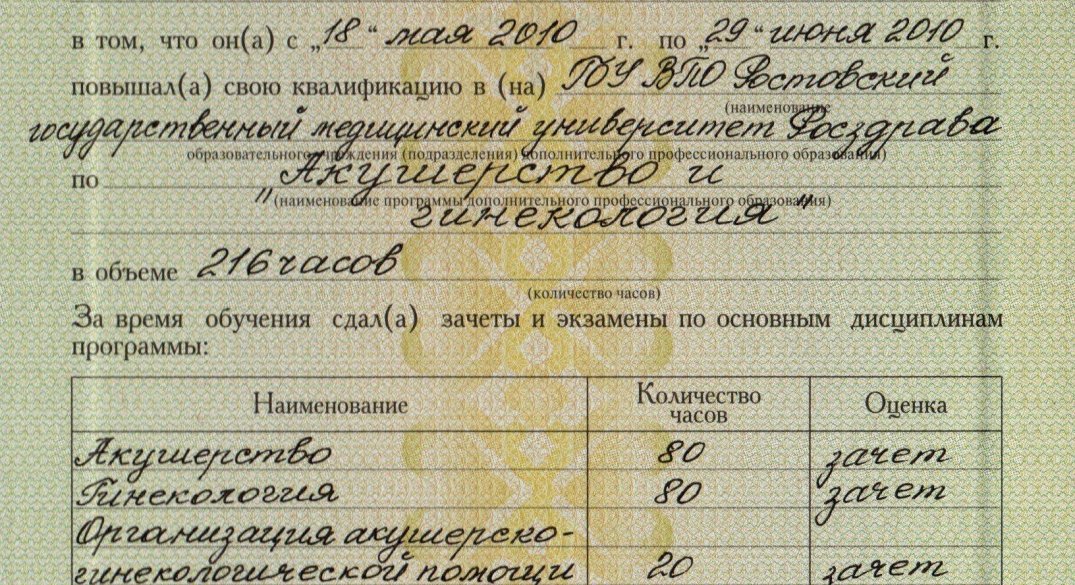 в том, что он(а) с „18“ мая 2010 г. по „29“ июня 2010 г.
повышал(а) свою квалификацию в (на) ГОУ ВПО Ростовский
(наименование
государственный медицинский университет Росздрава
образовательного учреждения (подразделения) дополнительного профессионального образования)
по „Акушерство и
(наименование программы дополнительного профессионального образования)
гинекология"
в объеме 216 часов
(количество часов)
За время обучения сдал(а) зачеты и экзамены по основным дисциплинам
программы:
Наименование Количество часов Оценка
Акушерство 80 зачет
Гинекология 80 зачет
Организация акушерско-
гинекологической помощи 20 зачет